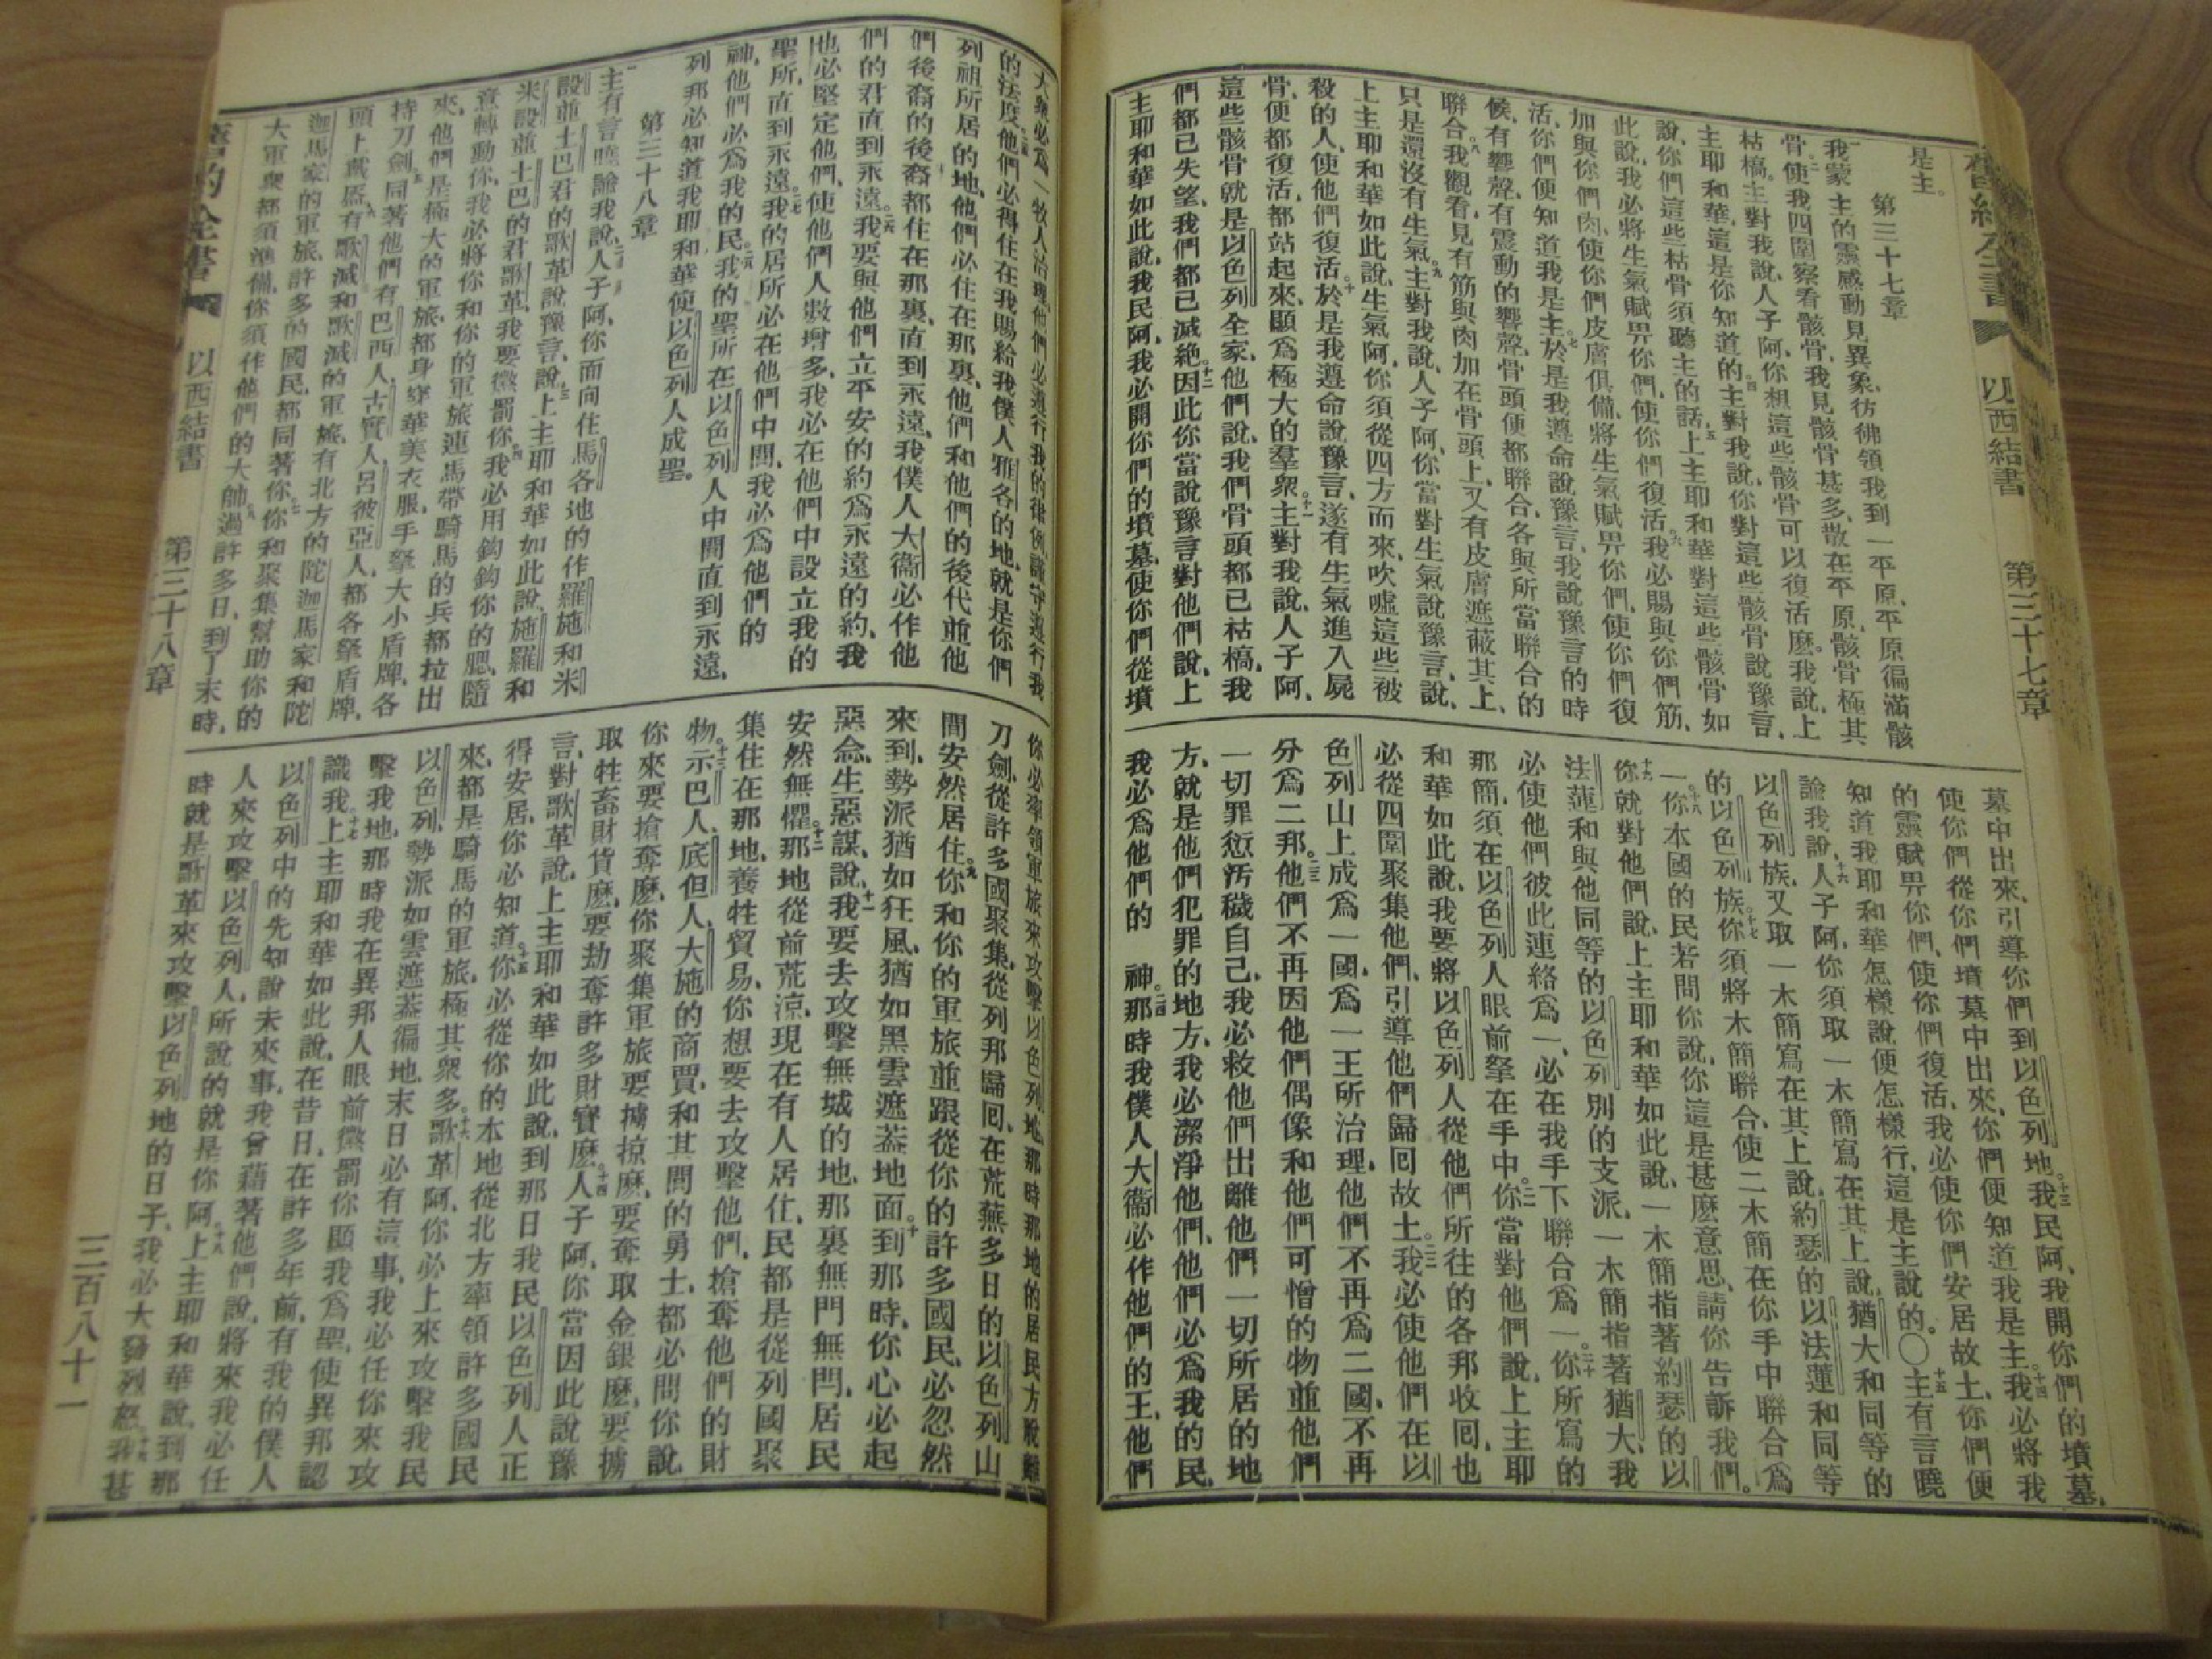 是主。
第三十七章
我蒙 主的靈感動見異象彷彿領我到一平原平原徧滿骸
骨使我四圍察看骸骨我見骸骨甚多散在平原骸骨極其
枯槁主對我說人子阿你想這些骸骨可以復活麼我說上
主耶和華這是你知道的主對我說你對這些骸骨說豫言
說你們這些枯骨須聽主的話上主耶和華對這些骸骨如
此說我必將生氣賦畀你們使你們復活我必賜與你們筋
加與你們肉使你們皮膚俱備將生氣賦畀你們使你們復
活你們便知道我是主於是我遵命說豫言我說豫言的時
候有響聲有震動的響聲骨頭便都聯合各與所當聯合的
聯合我觀看見有筋與肉加在骨頭上又有皮膚遮蔽其上
只是還沒有生氣主對我說人子阿你當對生氣說豫言說
上主耶和華如此說生氣阿你須從四方而來吹噓這些被
殺的人使他們復活於是我遵命說豫言遂有生氣進入屍
骨便都復活都站起來顯爲極大的羣衆主對我說人子阿
這些骸骨就是以色列全家他們說我們骨頭都已枯槁我
們都已失望我們都已滅絕因此你當說豫言對他們說上
主耶和華如此說我民阿我必開你們的墳墓使你們從墳
墓中出來引導你們到以色列地我民阿我開你們的墳墓
使你們從你們墳墓中出來你們便知道我是主我必將我
的靈賦畀你們使你們復活我必使你們安居故土你們便
知道我耶和華怎樣說便怎樣行這是主說的。○主有言曉
諭我說人子阿你須取一木簡寫在其上說猶大和同等的
以色列族又取一木簡寫在其上說約瑟的以法蓮和同等
的以色列族你須將木簡聯合使二木簡在你手中聯合爲
一你本國的民若問你說你這是甚麼意思請你告訴我們。
你就對他們說上主耶和華如此說一木簡指著約瑟的以
法蓮和與他同等的以色列別的支派一木簡指著猶大我
必使他們彼此連絡爲一必在我手下聯合爲一你所寫的
那簡須在以色列人眼前拏在手中你當對他們說上主耶
和華如此說我要將以色列人從他們所往的各邦收回也
必從四圍聚集他們引導他們歸回故土我必使他們在以
色列山上成爲一國爲一王所治理他們不再爲二國不再
分爲二邦他們不再因他們偶像和他們可憎的物並他們
一切罪愆汚穢自己我必救他們出離他們一切所居的地
方就是他們犯罪的地方我必潔淨他們他們必爲我的民
我必爲他們的 神那時我僕人大衞必作他們的王他們
以西結書 第三十七章
大衆必爲一牧人治理他們必遵行我的律例謹守遵行我
的法度他們必得住在我賜給我僕人雅各的地就是你們
列祖所居的地他們必住在那裏他們和他們的後代並他
們後裔的後裔都住在那裏直到永遠我僕人大衞必作他
們的君直到永遠我要與他們立平安的約爲永遠的約我
也必堅定他們使他們人數增多我必在他們中設立我的
聖所直到永遠我的居所必在他們中間我必爲他們的
神他們必爲我的民我的聖所在以色列人中間直到永遠
列邦必知道我耶和華使以色列人成聖
第三十八章
主有言曉諭我說人子阿你面向住馬各地的作羅施和米
設並土巴君的歌革說豫言說上主耶和華如此說施羅和
米設並土巴的君歌革我要懲罰你我必用鈎鈎你的腮隨
意轉動你我必將你和你的軍旅連馬帶騎馬的兵都拉出
來他們是極大的軍旅都身穿華美衣服手拏大小盾牌各
持刀劍同著他們有巴西人古實人呂彼亞人都各拏盾牌
頭上戴盔有歌滅和歌滅的軍旅有北方的陀迦馬家和陀
迦馬家的軍旅許多的國民都同著你你和聚集幫助你的
大軍衆都須準備你須作他們的大帥過許多日到了末時
你必率領軍旅來攻擊以色列地那時那地的居民方脫離
刀劍從許多國聚集從列邦歸回在荒蕪多日的以色列山
間安然居住你和你的軍旅並跟從你的許多國民必忽然
來到勢派猶如狂風猶如黑雲遮蓋地面到那時你心必起
惡念生惡謀說我要去攻擊無城的地那裏無門無閂居民
安然無懼那地從前荒涼現在有人居住民都是從列國聚
集住在那地養牲貿易你想要去攻擊他們搶奪他們的財
物示巴人底但人大施的商賈和其間的勇士都必問你說
你來要搶奪麽你聚集軍旅要擄掠麽要奪取金銀麽要擄
取牲畜財貨麽要劫奪許多財寶麽人子阿你當因此說豫
言對歌革說上主耶和華如此說到那日我民以色列人正
得安居你必知道你必從你的本地從北方率領許多國民
來都是騎馬的軍旅極其衆多歌革阿你必上來攻擊我民
以色列勢派如雲遮蓋徧地末日必有這事我必任你來攻
擊我地那時我在異邦人眼前懲罰你顯我爲聖使異邦認
識我上主耶和華如此說在昔日在許多年前有我的僕人
以色列中的先知說未來事我曾藉著他們說將來我必任
人來攻擊以色列人所說的就是你阿上主耶和華說到那
時就是歌革來攻擊以色列地的日子我必大發烈怒我甚
以西結書 第三十八章 三百八十一